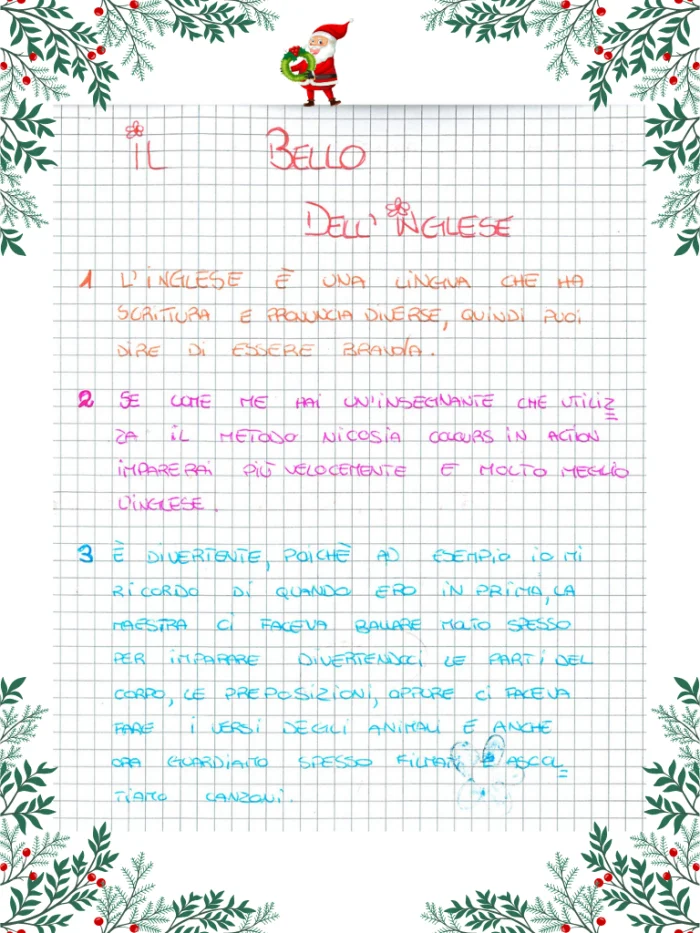 IL BELLO
DELL'INGLESE
1 L'INGLESE È UNA LINGUA CHE HA
SCRITTURA E PRONUNCIA DIVERSE, QUINDI PUOI
DIRE DI ESSERE BRAVO/A.
2 SE COME ME HAI UN'INSEGNANTE CHE UTILIZ
ZA IL METODO NICOSIA COLOURS IN ACTION
IMPARERAI PIÙ VELOCEMENTE E MOLTO MEGLIO
L'INGLESE.
3 È DIVERTENTE, POICHÈ AD ESEMPIO IO MI
RICORDO DI QUANDO ERO IN PRIMA, LA
MAESTRA CI FACEVA BALLARE MOLTO SPESSO
PER IMPARARE DIVERTENDOCI LE PARTI DEL
CORPO, LE PREPOSIZIONI, OPPURE CI FACEVA
FARE I VERSI DEGLI ANIMALI E ANCHE
ORA GUARDIAMO SPESSO FILMATI E ASCOL
TIAMO CANZONI.